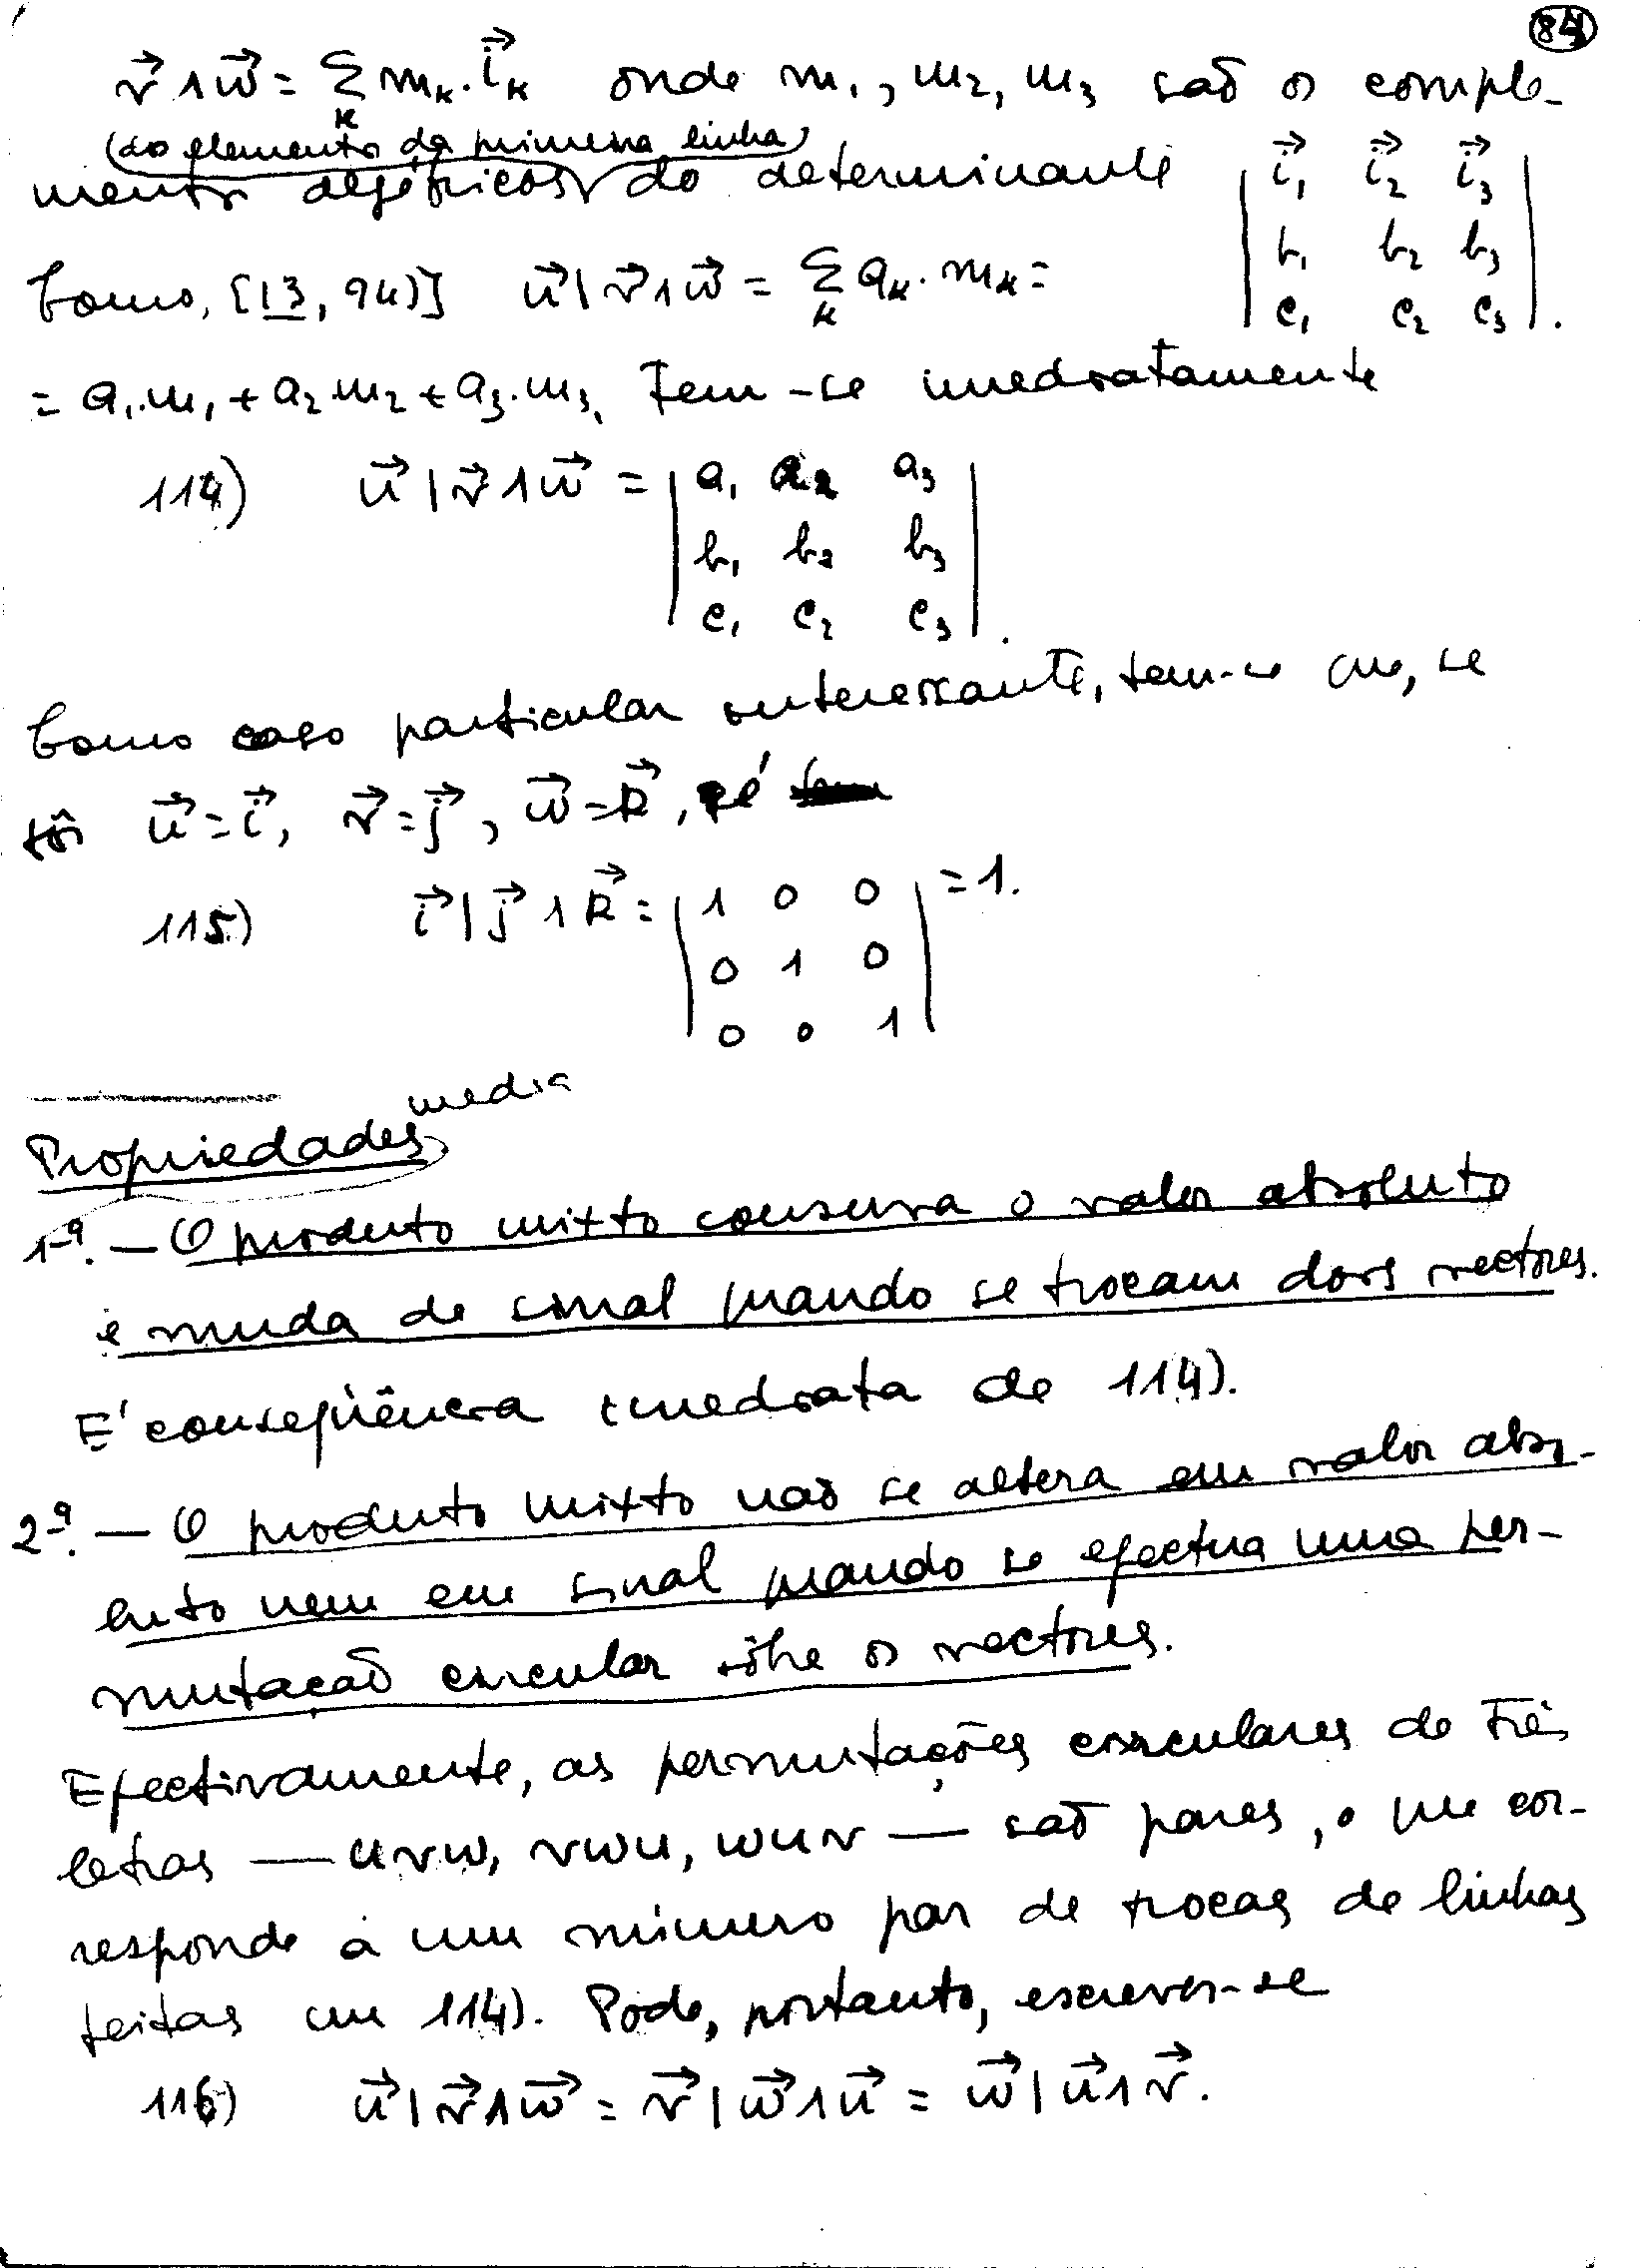 84
v⃗∧w⃗ = Σ_k m_k. i⃗_k onde m₁, m₂, m₃ são os comple-
(dos elementos da primeira linha)
mentos algébricos do determinante | i⃗₁ i⃗₂ i⃗₃ |
| b₁ b₂ b₃ |
| c₁ c₂ c₃ |.
Como, [13, 94)] u⃗|v⃗∧w⃗ = Σ_k a_k. m_k =
= a₁.m₁ + a₂.m₂ + a₃.m₃, tem-se imediatamente
114) u⃗|v⃗∧w⃗ = | a₁ a₂ a₃ |
| b₁ b₂ b₃ |
| c₁ c₂ c₃ |.
Como caso particular interessante, tem-se que, se
fôr u⃗=i⃗, v⃗=j⃗, w⃗=k⃗, é
115) i⃗|j⃗∧k⃗ = | 1 0 0 | = 1.
| 0 1 0 |
| 0 0 1 |
media
Propriedades
1ª. — O produto mixto conserva o valor absoluto
e muda de sinal quando se trocam dois vectores.
É conseqüência imediata de 114).
2ª. — O produto mixto não se altera em valor abso-
luto nem em sinal quando se efectua uma per-
mutação circular sôbre os vectores.
Efectivamente, as permutações circulares de três
letras — uvw, vwu, wuv — são pares, o que cor-
responde a um número par de trocas de linhas
feitas em 114). Pode, portanto, escrever-se
116) u⃗|v⃗∧w⃗ = v⃗|w⃗∧u⃗ = w⃗|u⃗∧v⃗.